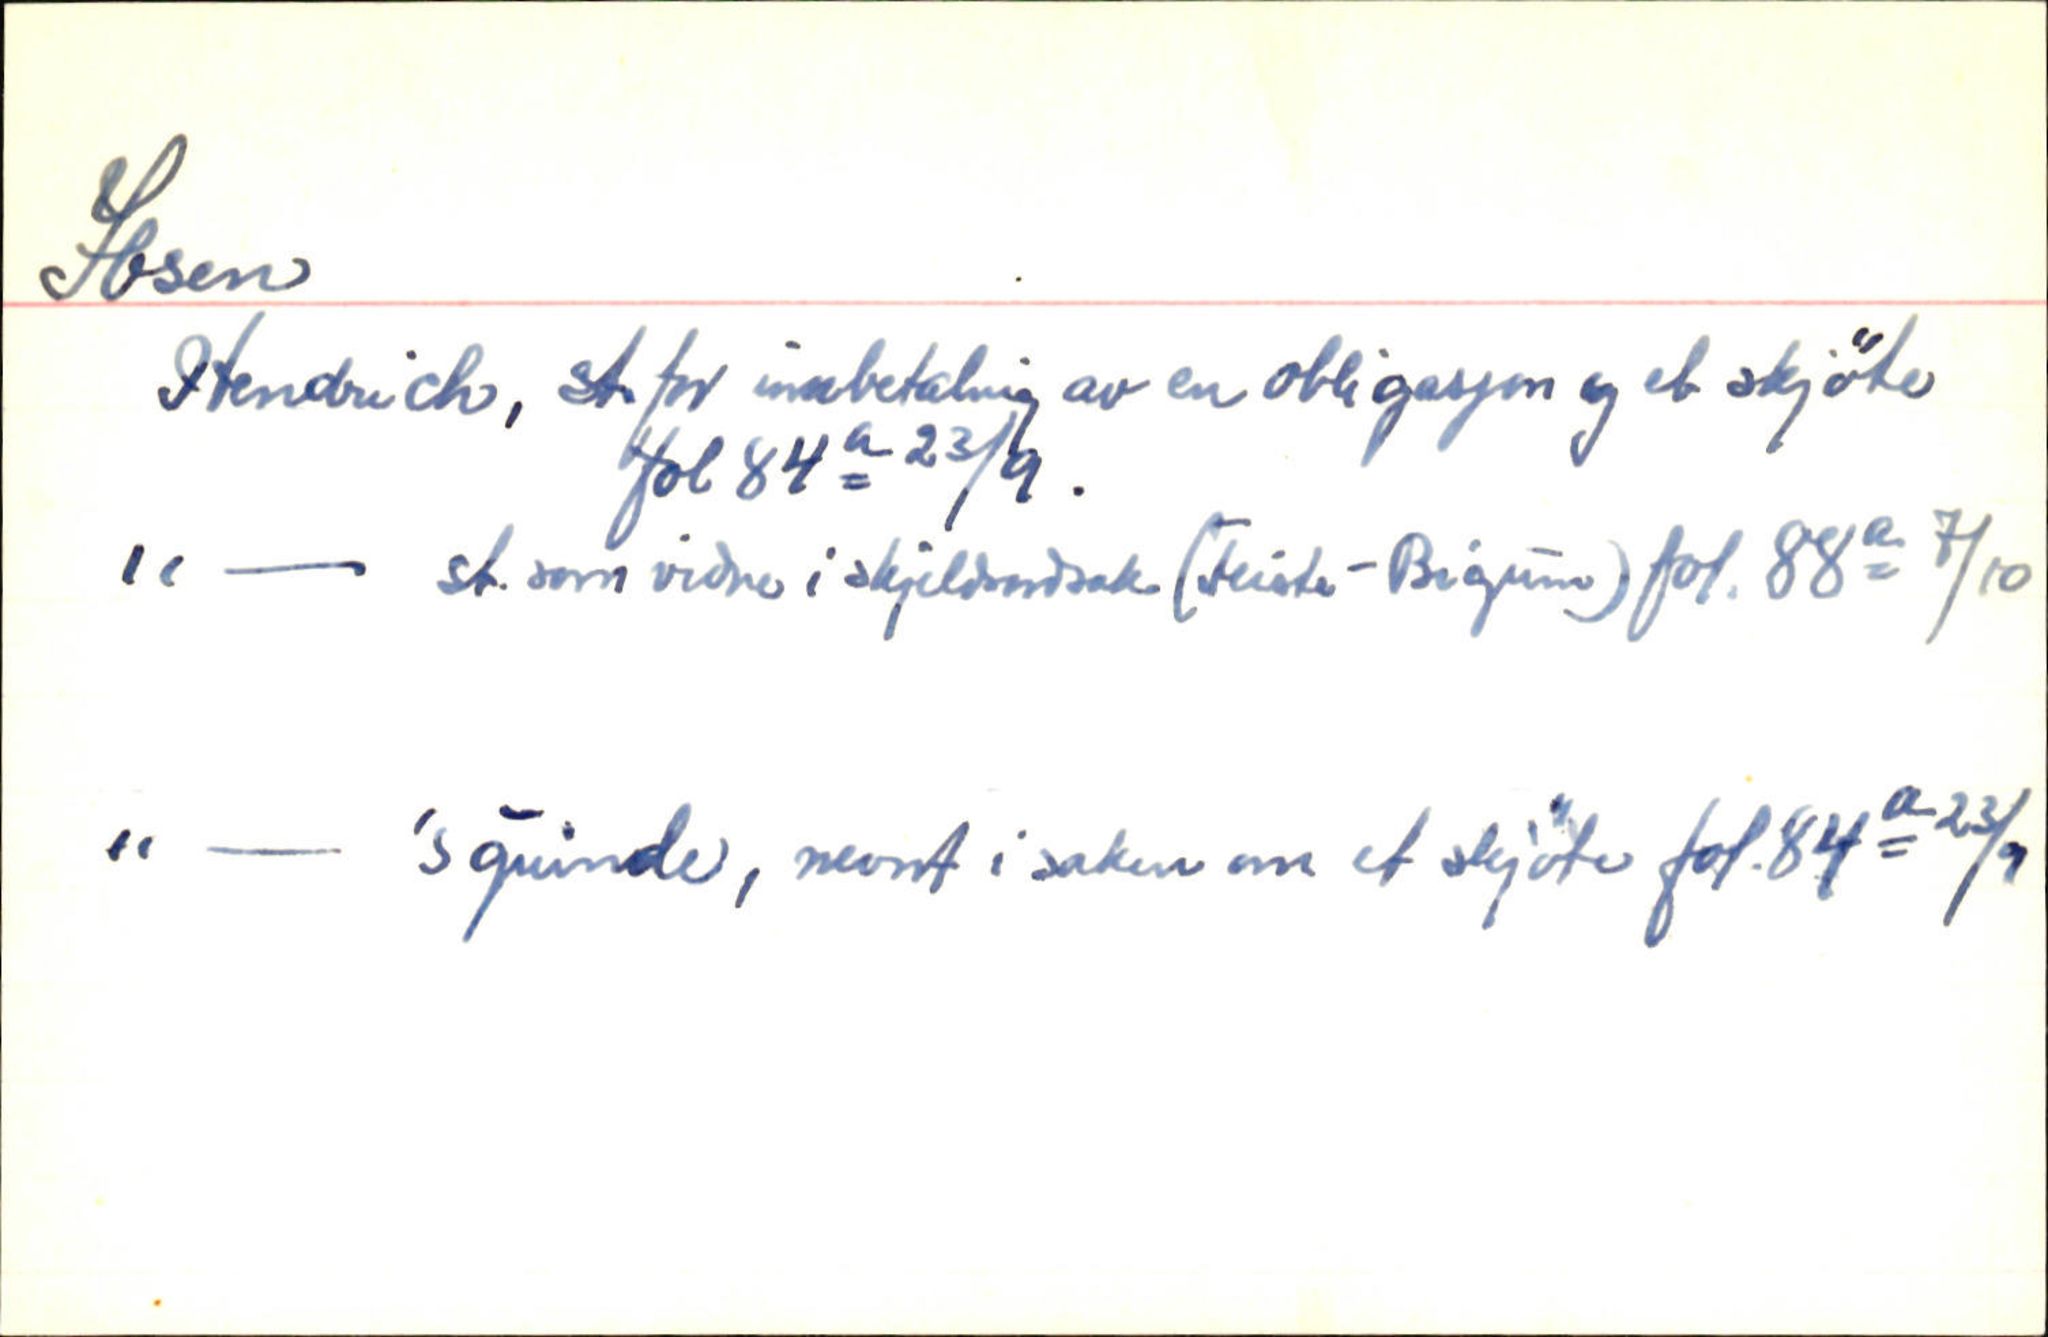 Ibsen
Hendrich, st. for innbetalnig av en obligasjon og et skjöte
fol 84a 23/9.
" — st. som vidne i skjeldsordsak (Feiste - Bigum) fol. 88a 7/10
" — 's quinde, nevnt i saken om et skjöte fol. 84a 23/9